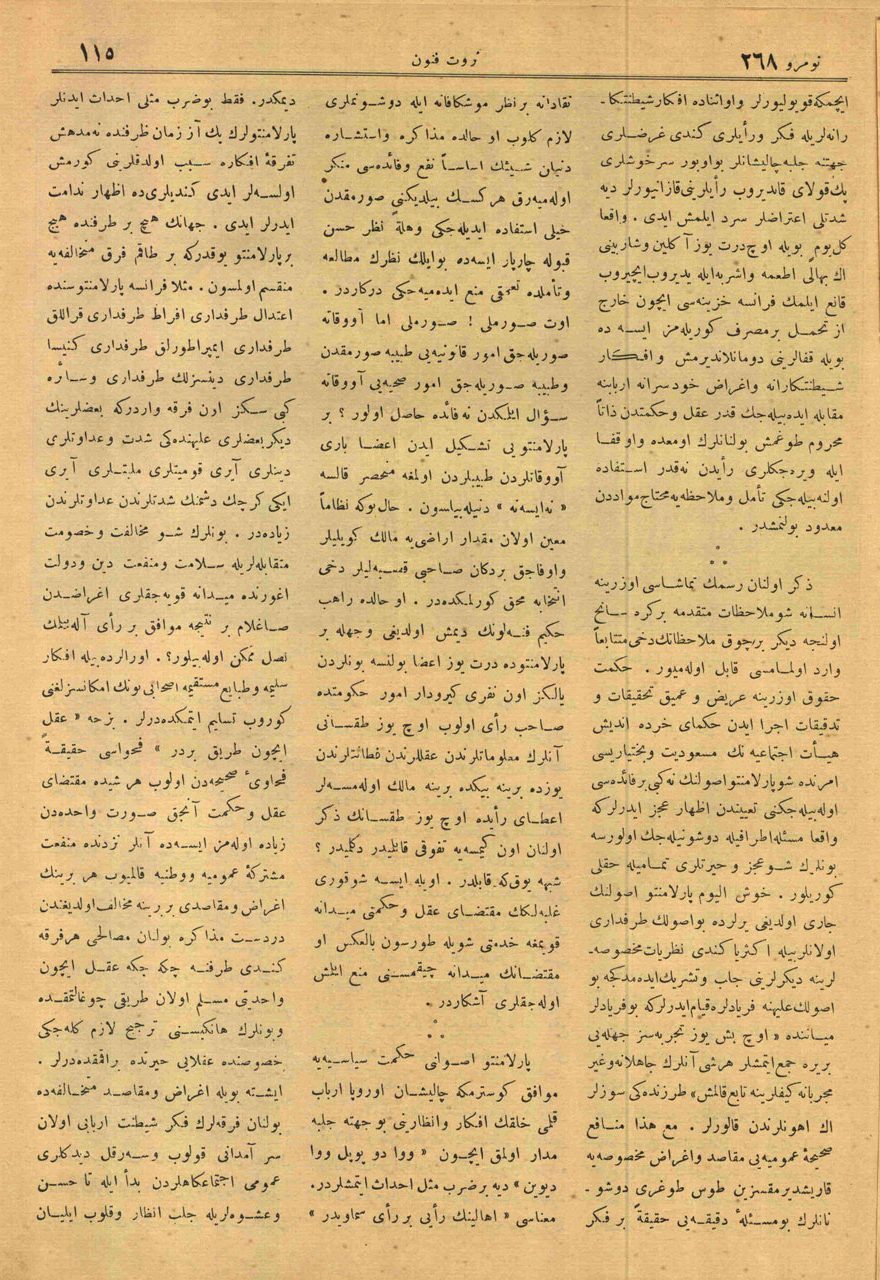 نومرو ٢٦٨
ثروت فنون
١١٥
ایچمکه قویولیورلر واواثناده افکار شیطنتکا-
رانه لریله فکر ورأیلری کندی غرضلری
جهتنه جلبه چالیشانلر بواوبور سرخوشلری
پك قولای قاندیروب رأیلرینی قازانیورلر دیه
شدتلی اعتراضلر سرد ایلمش ایدی . واقعا
کل یوم بویله اوچ درت یوز آکلین وشاربینی
اك بهالی اطعمه واشربه ایله یدیروب ایچیروب
قانع ایلمك فرانسه خزینه سی ایچون خارج
از تحمل بر مصرف کوریله مز ایسه ده
بویله قفالرینی دومانلاندیرمش وافکار
شیطنتکارانه واغراض خودسرانه اربابنه
مقابله ایده بیله جك قدر عقل وحکمتدن ذاتاً
محروم طوغمش بولنانلرك اومعده واوقفا
ایله ویره جکلری رأیدن نه قدر استفاده
اولنه بیله جکی تأمل وملاحظه یه محتاج مواددن
معدود بولنمشدر .
ذکر اولنان رسمك تماشاسی اوزرینه
انسانه شو ملاحظات متقدمه برکره سانح
اولنجه دیکر برچوق ملاحظاتك دخی متتابعاً
وارد اولمامسی قابل اوله میور . حکمت
حقوق اوزرینه عریض و عمیق تحقیقات و
تدقیقات اجرا ایدن حکمای خرده اندیش
هیأت اجتماعیه نك مسعودیت وبختیاریسی
امرنده شو پارلامنتو اصولنك نه کبی بر فائده سی
اوله بیله جکنی تعییندن اظهار عجز ایدرلرکه
واقعا مسئله اطرافیله دوشونیله جك اولورسه
بونلرك شو عجز و حیرتلری تمامیله حقلی
کوریلور . خوش الیوم پارلامنتو اصولنك
جاری اولدیغی یرلرده بو اصولك طرفداری
اولانلر بیله اکثریا کندی نظریات مخصوصه-
لرینه دیکرلرینی جلب وتشریك ایده مدکجه بو
اصولك علیهنه فریادلره قیام ایدرلرکه بو فریادلر
میاننده « اوچ بش یوز تجربه سز جهله یی
بریره جمع ایتمشلر هر شی آنلرك جاهلانه وغیر
مجربانه کیفلرینه تابع قالمش » طرزنده کی سوزلر
اك اهونلرندن قالورلر . مع هذا منافع
صحیحۀ عمومیه یی مقاصد واغراض مخصوصه یه
قاریشدیرمقسزین طوس طوغری دوشو-
نانلرك بو مسئلۀ دقیقه یی حقیقةً بر فکر
نقادانه بر نظر موشکافانه ایله دوشونملری
لازم کلوب او حالده مذاکره واستشاره
دنیلن شیئك اساساً نفع وفائده سی منکر
اوله میه رق هر کسك بیلدیکنی صورمقدن
خیلی استفاده ایدیله جکی وهلۀ نظر حسن
قبوله چارپار ایسه ده بو ایلك نظرك مطالعه
وتأملده تعمقی منع ایده میه جکی درکاردر .
اوت صورملی ! صورملی اما آووقاته
صوریله جق امور قانونیه یی طبیبه صورمقدن
وطبیبه صوریله جق امور صحیه یی آووقاته
سؤال ایتلکدن نه فائده حاصل اولور ؟ بر
پارلامنتویی تشکیل ایدن اعضا باری
آووقاتلردن طبیبلردن اولمغه منحصر قالسه
« نه ایسه نه » دنیله بیلسون . حال بوکه نظاماً
معین اولان مقدار اراضی یه مالك کویلیلر
واوفاجق بر دکان صاحبی قصبه لیلر دخی
انتخابه محق کورلمکده در . او حالده راهب
حکیم فنه لونك دیمش اولدیغی وجهله بر
پارلامنتوده درت یوز اعضا بولنسه بونلردن
یالکز اون نفری کیرودار امور حکومتده
صاحب رأی اولوب اوچ یوز طقسانی
آنلرك معلوماتلرندن عقللرندن فطانتلرندن
یوزده برینه بیکده برینه مالك اوله مسه لر
اعطای رأیده اوچ یوز طقسانك ذکر
اولنان اون کیمسه یه تفوقی قائلیدر دکلیدر ؟
شبهه یوق که قابلدر . اویله ایسه شو قوری
غلبه لکك مقتضای عقل وحکمتی میدانه
قویمغه خدمتی شویله طورسون بالعکس او
مقتضانك میدانه چیقمسنی منع ایتلش
اوله جقلری آشکاردر .
پارلامنتو اصولنی حکمت سیاسیه یه
موافق کوسترمکه چالیشان اوروپا ارباب
قلمی خلقك افکار وانظارینی بو جهته جلبه
مدار اولمق ایچون « ووا دو پوپل ووا
دیوین » دیه بر ضرب مثل احداث ایتمشلردر.
معناسی « اهالینك رأیی بر رأی سماویدر »
دیمکدر. فقط بو ضرب مثلی احداث ایدنلر
پارلامنتولرك یك آز زمان ظرفنده نه مدهش
تفرقۀ افکاره سبب اولدقلرینی کورمش
اولسه لر ایدی کندیلری ده اظهار ندامت
ایدرلر ایدی . جهانك هیچ بر طرفنده هیچ
بر پارلامنتو یوقدرکه بر طاقم فرق متخالفه یه
منقسم اولمسون . مثلا فرانسه پارلامنتوسنده
اعتدال طرفداری افراط طرفداری قراللق
طرفداری ایمپراطورلق طرفداری کنیسا
طرفداری دینسزلك طرفداری وسائره
کبی سکز اون فرقه واردرکه بعضلرینك
دیکر بعضلری علیهنده کی شدت وعداوتلری
دینلری آیری قومیتلری ملیتلری آیری
ایکی کرچك دشمنك شدتلرندن عداوتلرندن
زیاده در . بونلرك شو مخالفت وخصومت
متقابله لریله سلامت ومنفعت دین ودولت
اغورنده میدانه قویه جقلری اغراضدن
صاغلام بر نتیجه موافق بر رأی آله بیلمك
نصل ممکن اوله بیلور؟ . اورالرده بیله افکار
سلیمه وطبایع مستقیمه اصحابی بونك امکانسزلغنی
کوروب تسلیم ایتمکده درلر . بزجه « عقل
ایچون طریق بردر » فحواسی حقیقةً
فحاوئ صحیحه دن اولوب هر شیده مقتضای
عقل وحکمت آنجق صورت واحده دن
زیاده اوله مز ایسه ده آنلر نزدنده منفعت
مشترکۀ عمومیه ووطنیه قالمیوب هر برینك
اغراض ومقاصدی بربرینه مخالف اولدیغندن
دردست مذاکره بولنان مصالحی هر فرقه
کندی طرفنه چکه چکه عقل ایچون
واحدیتی مسلم اولان طریقی چوغالتمقده
وبونلرك هانکیسنی ترجیح لازم کله جکی
خصوصنده عقلایی حیرتده براقمقده درلر .
ایشته بویله اغراض ومقاصد متخالفه ده
بولنان فرقه لرك فکر شیطنت اربابی اولان
سر آمدانی قولوب وسه رقل دیدکلری
عمومی اجتماعکاهلردن بدأ ایله تا حسن
وعشوه لریله جلب انظار وقلوب ایلیان